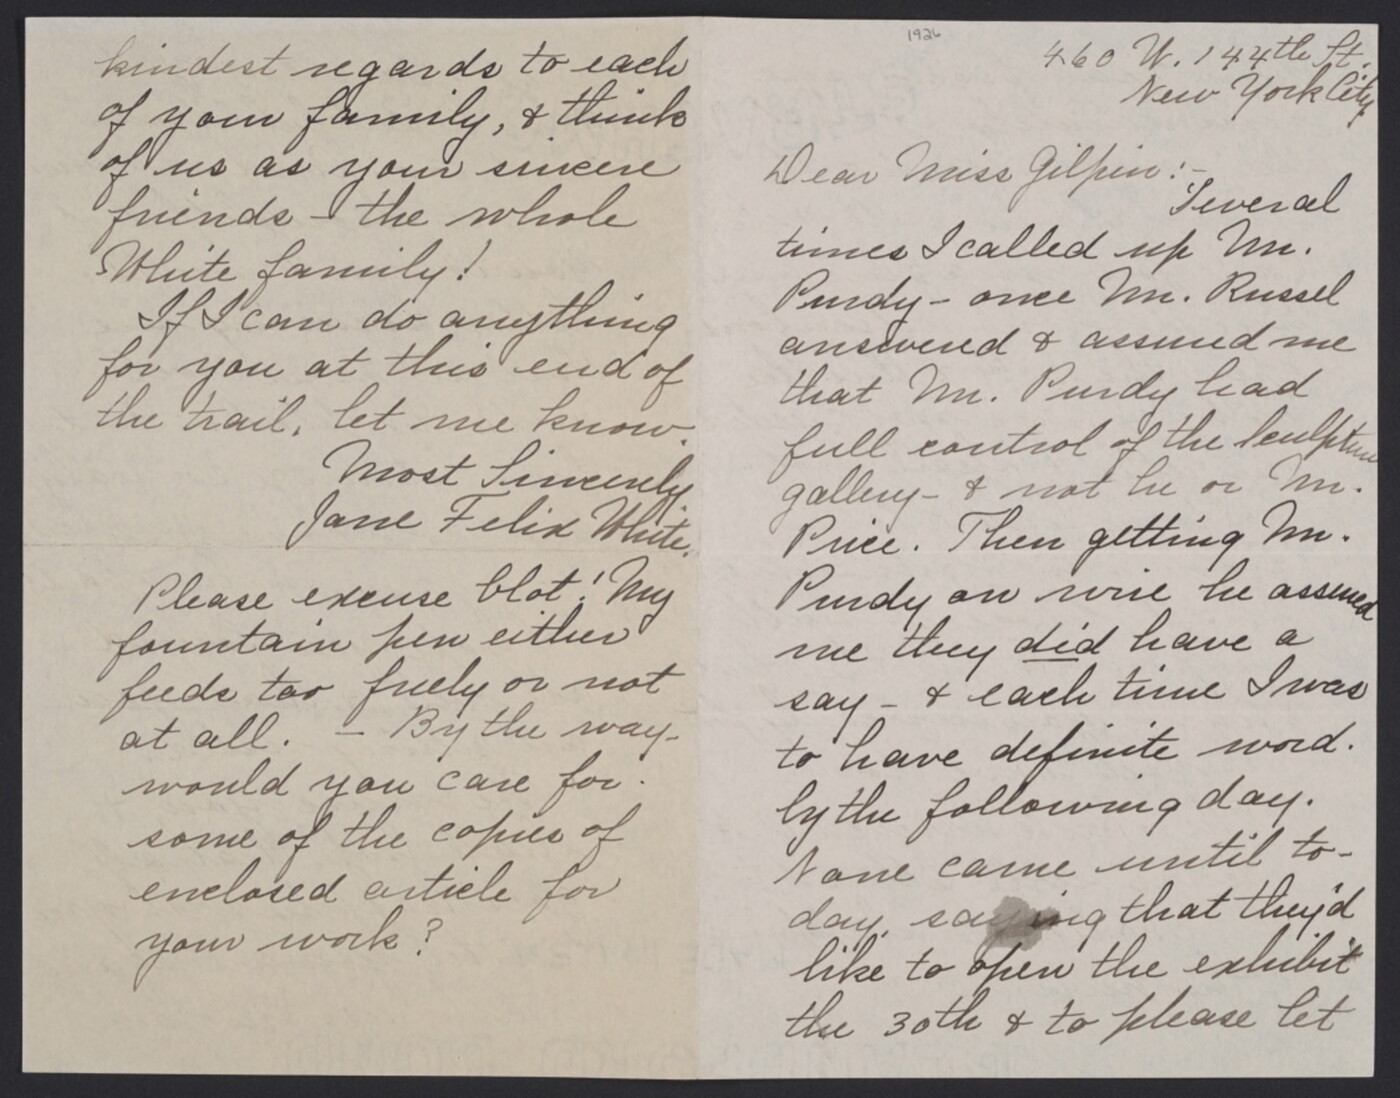 1926
460 W. 144th St.
New York City
Dear Miss Gilpin:-
Several
times I called up Mr.
Purdy - once Mr. Russel
answered & assured me
that Mr. Purdy had
full control of the Sculpture
gallery - & not he or Mr.
Price. Then getting Mr.
Purdy on wire he assured
me they did have a
say - & each time I was
to have definite word.
by the following day.
None came until to-
day, saying that they'd
like to open the exhibit
the 30th & to please let
kindest regards to each
of your family, & think
of us as your sincere
friends - the whole
White family!
If I can do anything
for you at this end of
the trail, let me know.
Most Sincerely
Jane Felix White.
Please excuse blot! My
fountain pen either
feeds too freely or not
at all. - By the way -
would you care for
some of the copies of
enclosed article for
your work?